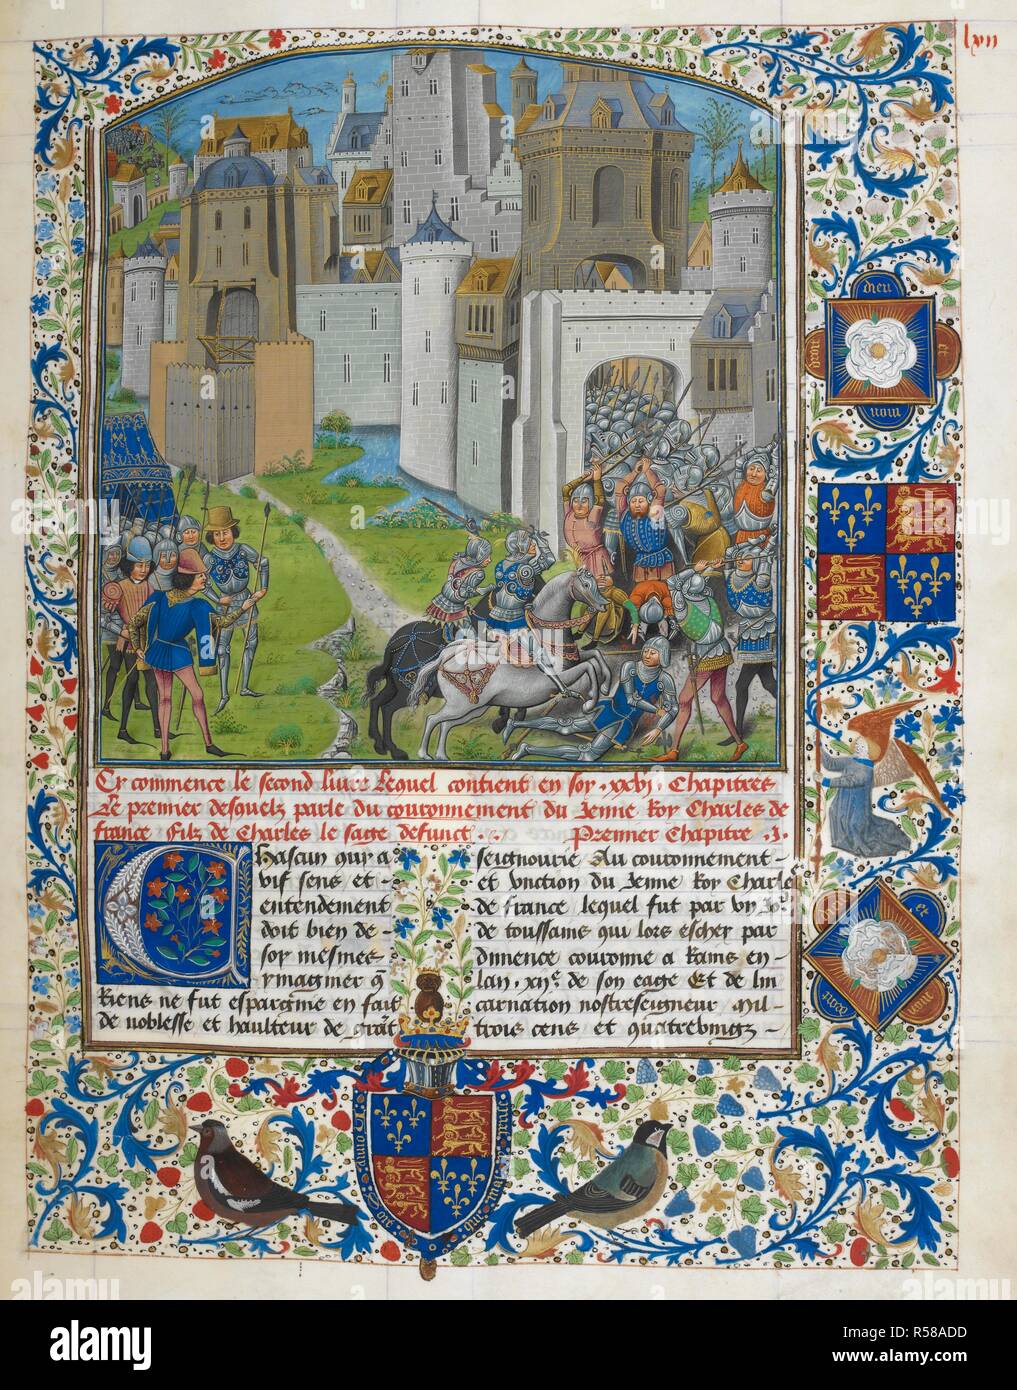 lxii
Cy commence le second livre lequel contient en soy .xxvj. Chapitres
Le premier desquelz parle du couronnement du Jenne Roy Charles de
france filz de Charles le sage deffunct. Premier Chapitre .j.
Chascun quy a
vif sens et
entendement
doit bien de
soy mesmes
ymaginer q̃
Riens ne fut espargnie en fait
de noblesse et haulteur de grãt
seignourie Au couronnement
et Unction du Jenne Roy Charles
de france lequel fut par un Jor
de toussains quy lors eschey par
dimence couronne a Rains en
lan .xije. de son eage Et de lin
carnation nostreseigneur Mil
trois cens et quatrebingz
dieu
et
mon
droit
et
mon
droit
Honny soit quy mal y pence
alamy stock photo
alamy
Image ID: R58ADD
www.alamy.com